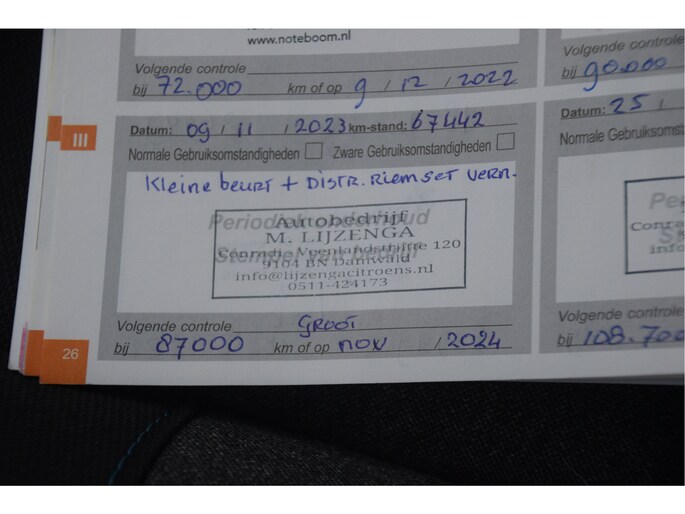 www.noteboom.nl
Volgende controle
bij 72.000 km of op 9 / 12 / 2022
Volgende controle
bij 90.000
III
Datum: 09 / 11 / 2023 km-stand: 67442
Normale Gebruiksomstandigheden Zware Gebruiksomstandigheden
Kleine beurt + Distr. riem set vern.
Autobedrijf
M. LIJZENGA
Conradi- Veenlandsdriftte 120
9104 BN Damwald
info@lijzengacitroens.nl
0511-424173
Volgende controle GROOT
bij 87000 km of op nov / 2024
Datum: 25 /
Normale Gebruiksom
Conra
info
Volgende controle
bij 108.700
26